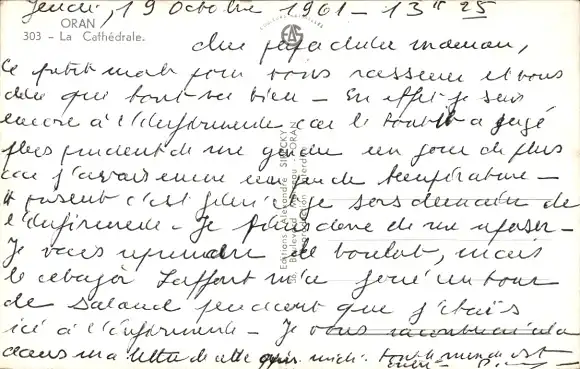 Jeudi, 19 Octobre 1961 - 13 H 25
ORAN
303 - La Cathédrale.
Cher papa chère maman,
Ce petit mot pour vous rassurer et vous
dire que tout va bien - En effet je suis
encore à l'infirmerie car le toubib a jugé
plus prudent de me garder un jour de plus
car j'avais encore un peu de température -
A présent c'est fini je sors demain de
l'infirmerie - Je donc de me reposer -
Je vais reprendre le boulot, mais
le Laffont m'a joué un tour
de salaud pendant que j'étais
ici à l'infirmerie - Je vous raconterai cela
dans ma lettre de cette midi. tout le monde est
Editions Alexandre
Boulevard - ORAN
Reproduction interdite